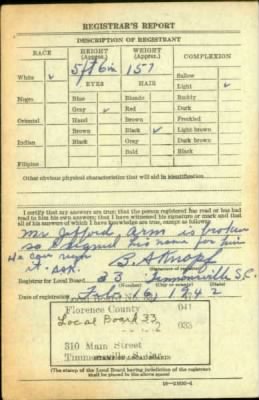 REGISTRAR'S REPORT
DESCRIPTION OF REGISTRANT
RACE HEIGHT (Approx.) WEIGHT (Approx.) COMPLEXION
5 ft 6 in 157
EYES HAIR
White ✓ Sallow
Light ✓
Negro Blue Blonde Ruddy
Gray ✓ Red Dark
Oriental Hazel Brown Freckled
Brown Black ✓ Light brown
Indian Black Gray Dark brown
Bald Black
Filipino
Other obvious physical characteristics that will aid in identification
I certify that my answers are true; that the person registered has read or has had
read to him his own answers; that I have witnessed his signature or mark and that
all of his answers of which I have knowledge are true, except as follows:
Mr Jefford, arm is broken
so I signed his name for him
He can sign
it. BAK. B. A Knopf
(Signature of registrar)
Registrar for Local Board 33 Timmonsville S.C.
(Number) (City or county) (State)
Date of registration Feb. 16, 1942
Florence County 041
Local Board 33 2
035
310 Main Street
Timmonsville, S. C.
(STAMP OF LOCAL BOARD)
(The stamp of the Local Board having jurisdiction of the registrant
shall be placed in the above space)